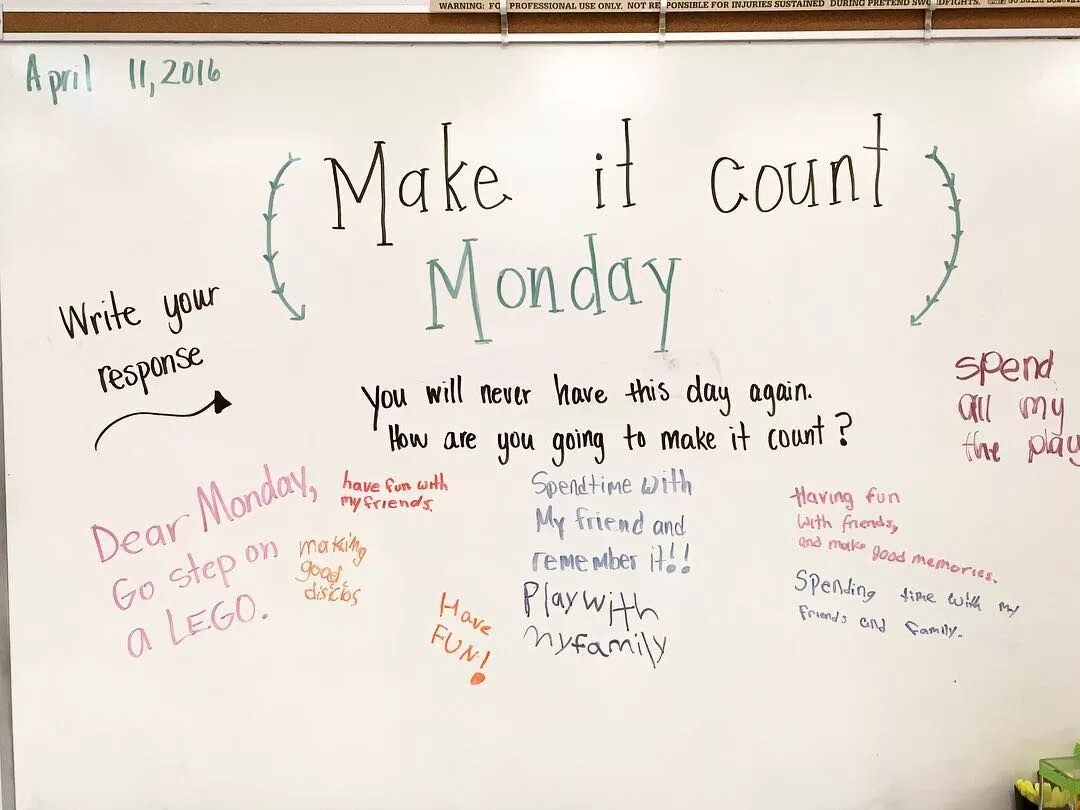 WARNING: FO PROFESSIONAL USE ONLY. NOT RE PONSIBLE FOR INJURIES SUSTAINED DURING PRETEND SWO DFIGHTS.
April 11, 2016
Make it count
Monday
Write your
response
You will never have this day again.
How are you going to make it count?
Spend
all my
the play
Dear Monday,
Go step on
a LEGO.
have fun with
my friends.
making
good
Have
FUN!
Spendtime with
My friend and
remember it!!
Play with
myfamily
Having fun
with friends,
and make good memories.
Spending time with my
friends and family.